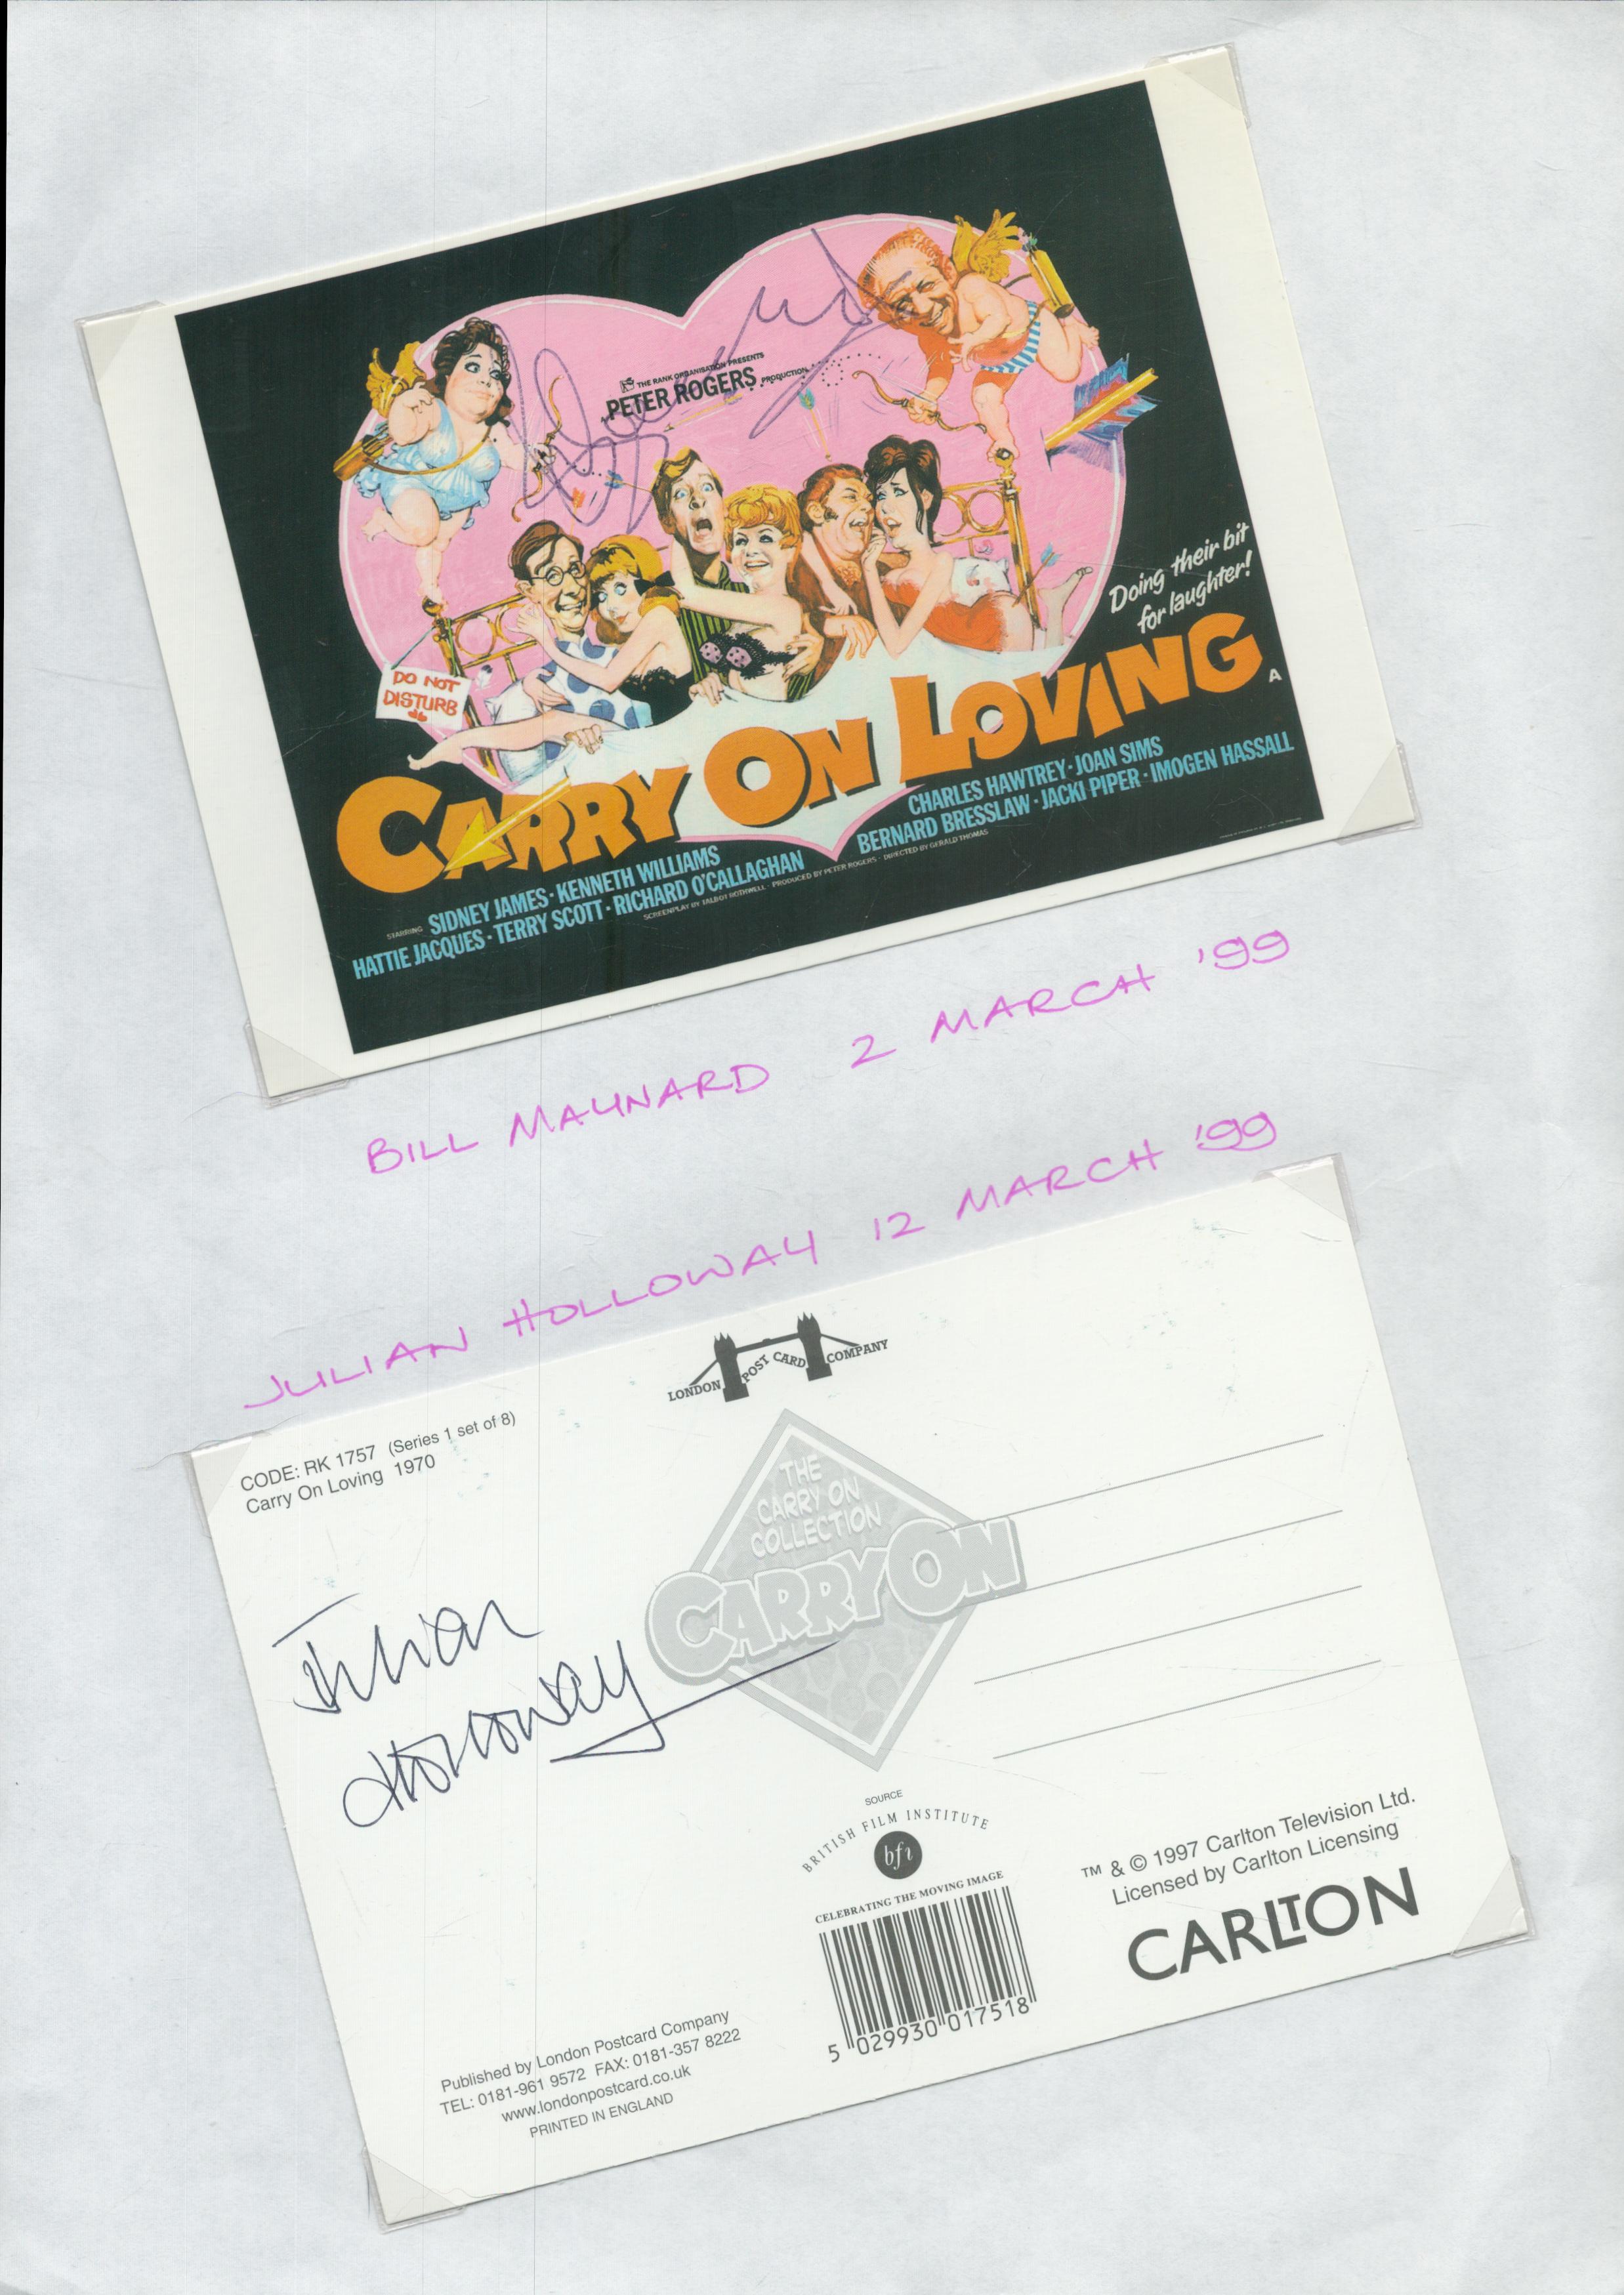 THE RANK ORGANISATION PRESENTS
A PETER ROGERS PRODUCTION
DO NOT
DISTURB
Doing their bit
for laughter!
CARRY ON LOVING A
STARRING SIDNEY JAMES · KENNETH WILLIAMS
CHARLES HAWTREY · JOAN SIMS
HATTIE JACQUES · TERRY SCOTT · RICHARD O'CALLAGHAN
BERNARD BRESSLAW · JACKI PIPER · IMOGEN HASSALL
SCREENPLAY BY TALBOT ROTHWELL · PRODUCED BY PETER ROGERS · DIRECTED BY GERALD THOMAS
BILL MAYNARD 2 MARCH '99
JULIAN HOLLOWAY 12 MARCH '99
LONDON POST CARD COMPANY
CODE: RK 1757 (Series 1 set of 8)
Carry On Loving 1970
THE
CARRY ON
COLLECTION
CARRY ON
Julian
Holloway
SOURCE
BRITISH FILM INSTITUTE
bfi
CELEBRATING THE MOVING IMAGE
5 029930 017518
TM & © 1997 Carlton Television Ltd.
Licensed by Carlton Licensing
CARLTON
Published by London Postcard Company
TEL: 0181-961 9572 FAX: 0181-357 8222
www.londonpostcard.co.uk
PRINTED IN ENGLAND